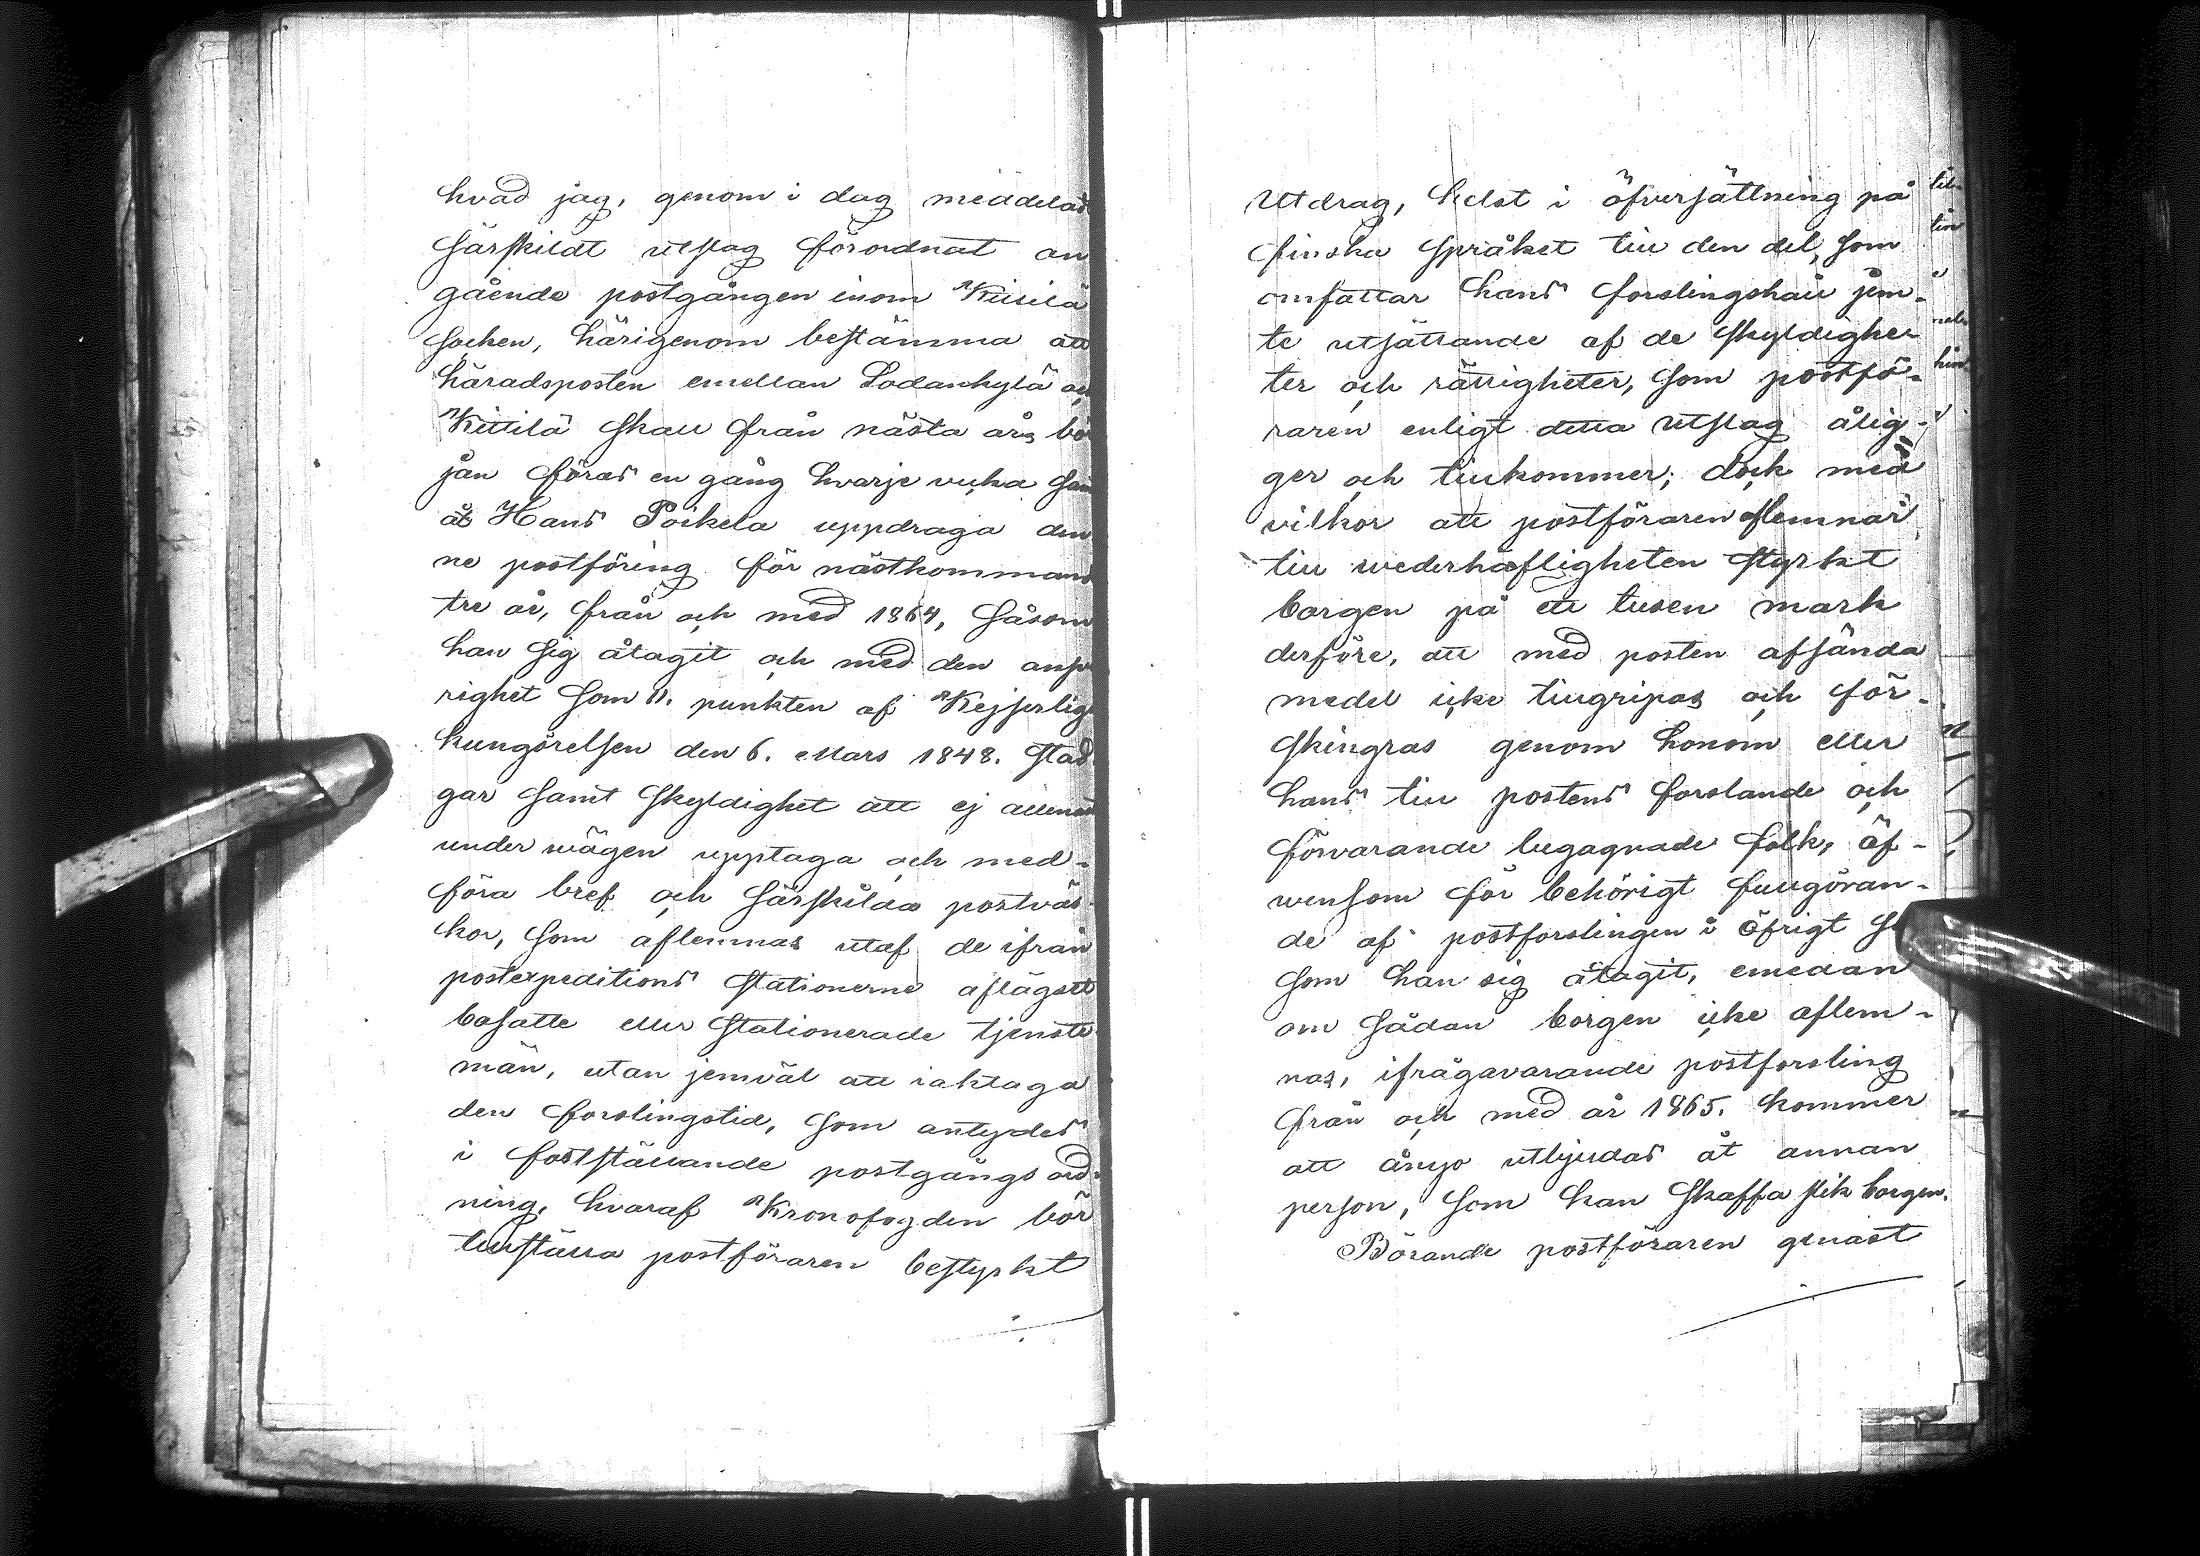 hvad jag, genom i dag meddelad
särskildt utslag förordnat an
gående postgången inom Kittilä
socken, härigenom bestämma att
häradsposten emellan Sodankylä och
Kittilä skall från nästa års bör
jan föras en gång hvarje vecka sam
åt Hans Poikela uppdraga den
ne postföring för nästkommand
tre år, från och med 1864, såsom
han sig åtagit och med den
righet som 11. punkten af Kejserlig
kungörelsen den 6. Mars 1848. stad
gar samt skyldighet att ej allenast
under wägen upptaga och med-
föra bref och särskilda postväs
kor, som aflemnas utaf de ifrån
postexpeditions stationerne aflägset
bosatte eller stationerade tjenste
män, utan jemväl att iakttaga
den forslingstid, som antydes
i fastställande postgångs ord-
ning, hvaraf Kronofogden bör
tillställa postföraren bestyrkt
Utdrag, helst i öfversättning på
finska språket till den del, som
omfattar hans forslingshåll jem-
te utsättande af de skyldighe
ter och rättigheter, som postfö-
raren enligt detta utslag ålig-
ger och tillkommer; dock med
vilkor att postföraren aflemnar
till wederhäftigheten styrkt
borgen på ett tusen mark
derföre, att med posten afsända
medel icke tillgripas och för-
skingras genom honom eller
hans till postens forslande och
förvarande begagnade folk, äf-
wensom för behörigt fullgöran-
de af postforslingen i öfrigt så
som han sig åtagit, emedan
om sådan borgen icke aflem-
nas, ifrågavarande postforsling
från och med år 1865. kommer
att ånyo utbjudas åt annan
person, som kan skaffa slik borgen.
Börande postföraren genast